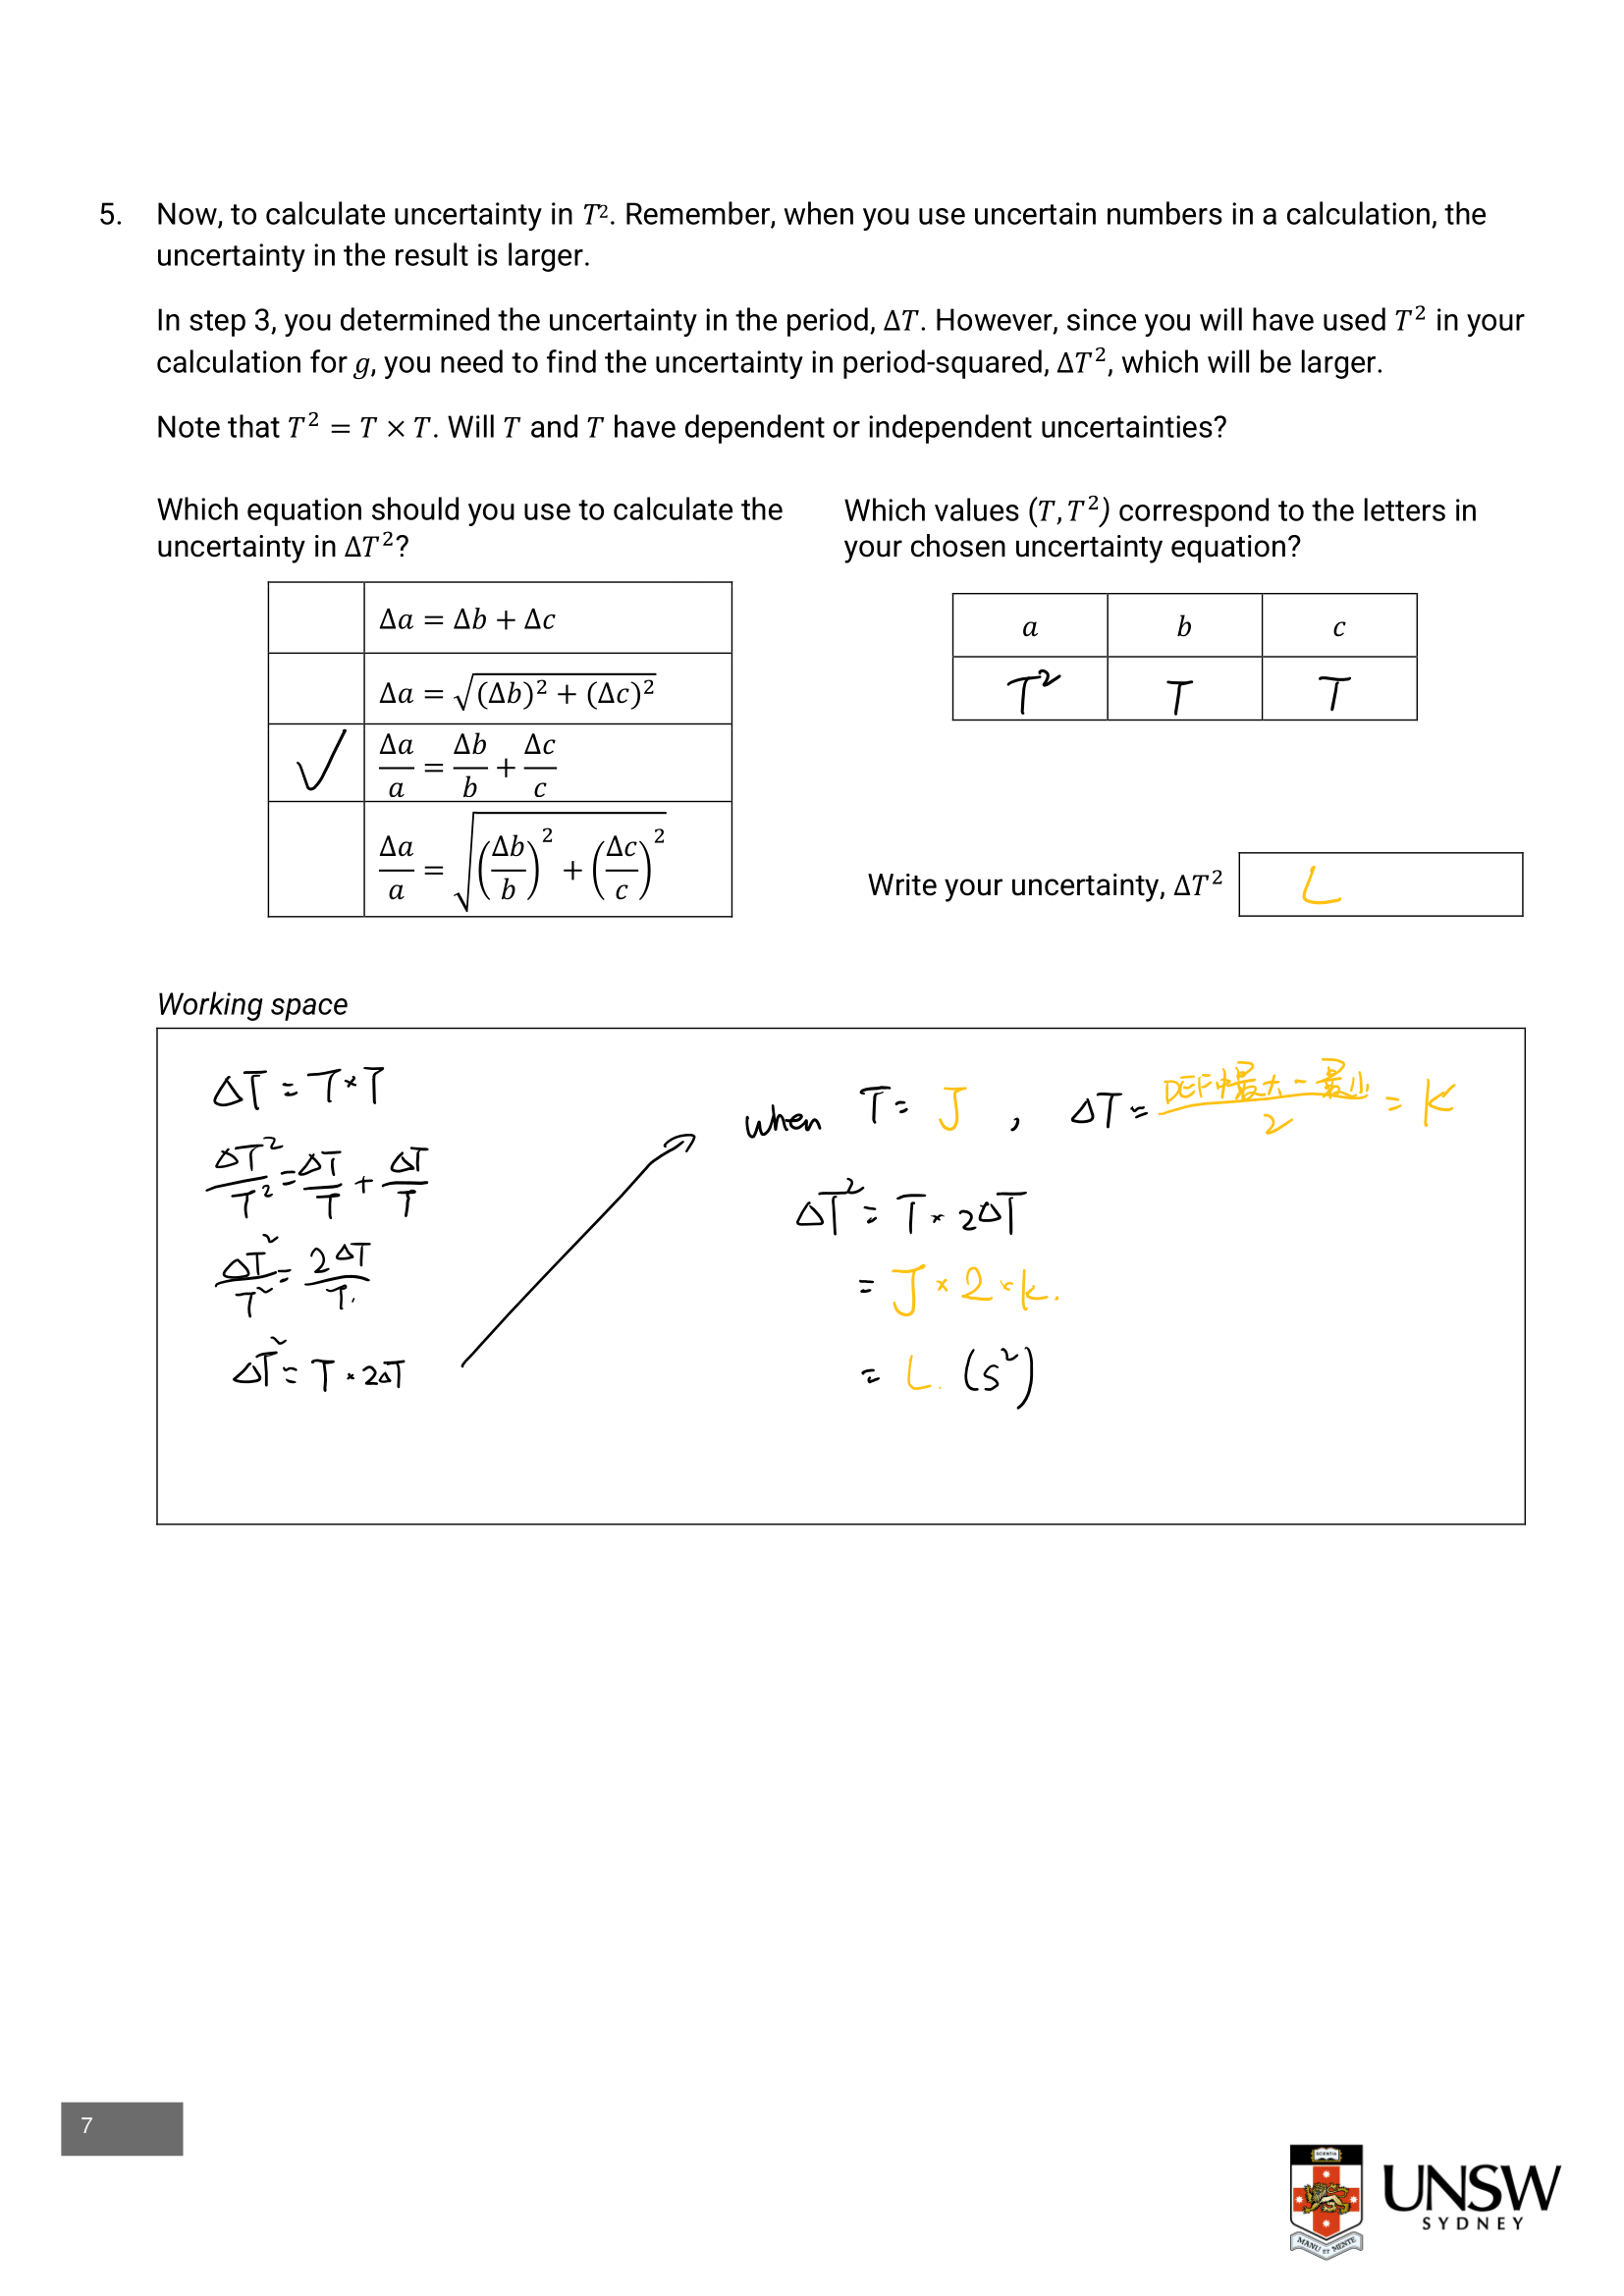 5. Now, to calculate uncertainty in T². Remember, when you use uncertain numbers in a calculation, the
uncertainty in the result is larger.
In step 3, you determined the uncertainty in the period, ΔT. However, since you will have used T² in your
calculation for g, you need to find the uncertainty in period-squared, ΔT², which will be larger.
Note that T² = T × T. Will T and T have dependent or independent uncertainties?
Which equation should you use to calculate the
uncertainty in ΔT²?
Δa = Δb + Δc
Δa = √((Δb)² + (Δc)²)
✓ Δa/a = Δb/b + Δc/c
Δa/a = √((Δb/b)² + (Δc/c)²)
Which values (T, T²) correspond to the letters in
your chosen uncertainty equation?
a b c
T² T T
Write your uncertainty, ΔT² L
Working space
ΔT = T × T
ΔT²/T² = ΔT/T + ΔT/T
ΔT²/T² = 2ΔT/T.
ΔT² = T × 2ΔT
when T = J , ΔT = DEF中最大 - 最小/2 = K
ΔT² = T × 2ΔT
= J × 2 × K.
= L. (s²)
7
SCIENTIA
MANU ET MENTE
UNSW
SYDNEY